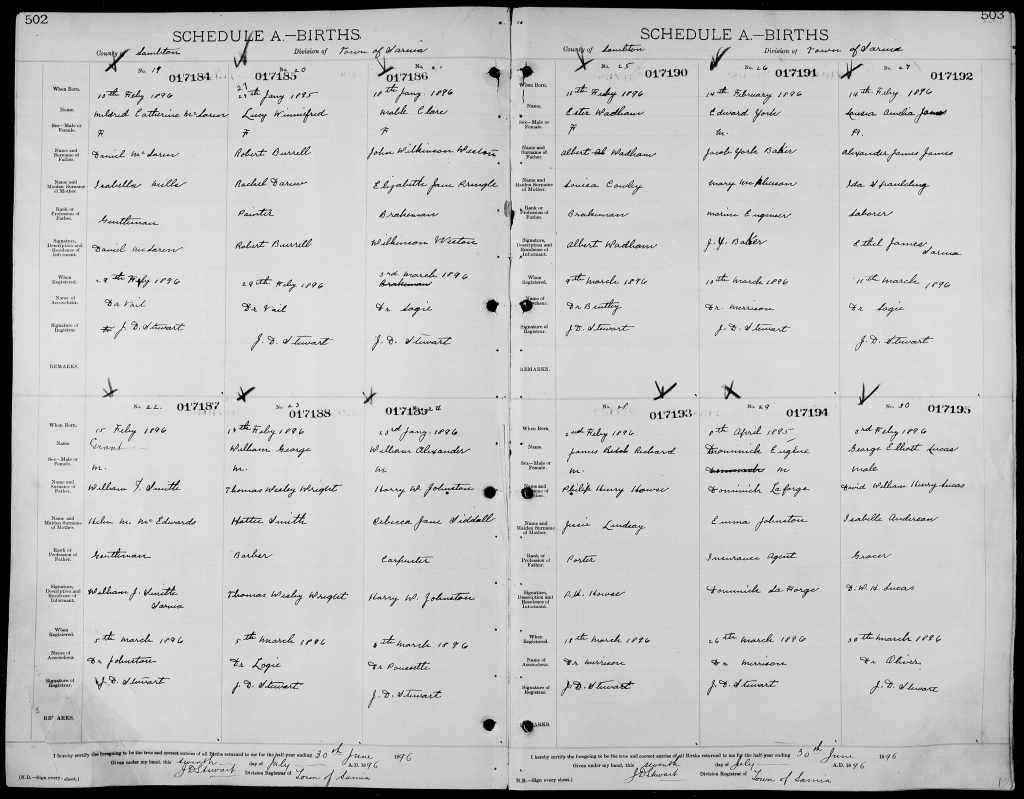 502
SCHEDULE A.—BIRTHS.
County of Lambton Division of Town of Sarnia
No. 19 017184
No. 20 017185
No. 21 017186
When Born.
10th Feby 1896
27th Jany 1895
18th Jany. 1896
Name.
Mildred Catherine McLaren
Lucy Winnifred
Mable Clare
Sex—Male or Female.
F
F
F
Name and Surname of Father.
Daniel McLaren
Robert Burrell
John Wilkinson Weston
Name and Maiden Surname of Mother.
Isabella Mills
Rachel Darew
Elizabeth Jane Pringle
Rank or Profession of Father.
Gentleman
Painter
Brakeman
Signature, Description and Residence of Informant.
Daniel McLaren
Robert Burrell
Wilkinson Weston
When Registered.
29th Feby 1896
29th Feby 1896
3rd March 1896
Brakeman
Name of Accoucheur.
Dr Vail
Dr Vail
Dr Logie
Signature of Registrar.
J. D. Stewart
J. D. Stewart
J. D. Stewart
REMARKS.
No. 22. 017187
No. 23 017188
No. 24 017189
When Born.
15 Feby 1896
14th Feby 1896
23rd Jany. 1896
Name
Grant
William George
William Alexander
Sex—Male or Female.
M.
M.
M
Name and Surname of Father.
William J. Smith
Thomas Wesley Wright
Harry W. Johnston
Name and Maiden Surname of Mother.
Helen M. McEdwards
Hattie Smith
Rebecca Jane Siddall
Rank or Profession of Father.
Gentleman
Barber
Carpenter
Signature, Description and Residence of Informant.
William J. Smith
Sarnia
Thomas Wesley Wright
Harry W. Johnston
When Registered.
5th March 1896
5th March 1896
8th March 1896
Name of Accoucheur.
Dr Johnston
Dr Logie
Dr Poussette
Signature of Registrar.
J. D. Stewart
J. D. Stewart
J. D. Stewart
REMARKS.
I hereby certify the foregoing to be the true and correct entries of all Births returned to me for the half-year ending 30th June 1896
Given under my hand, this seventh day of July A.D. 1896
J D Stewart Division Registrar of Town of Sarnia
(N.B.—Sign every sheet.)
503
SCHEDULE A.—BIRTHS
County of Lambton Division of Town of Sarnia
No. 25 017190
No. 26 017191
No. 27 017192
When Born.
11th Feby 1896
14th February 1896
14th Feby 1896
Name.
Ester Wadham
Edward York
Louisa Amelia James
Sex—Male or Female.
F
M.
Name and Surname of Father.
Albert Wadham
Jacob York Baker
Alexander James James
Name and Maiden Surname of Mother.
Louisa Cowley
Mary McPherson
Ida Spaulding
Rank or Profession of Father.
Brakeman
Marine Engineer
Laborer
Signature, Description and Residence of Informant.
Albert Wadham
J. Y. Baker
Ethel James
Sarnia
When Registered.
9th March 1896
10th March 1896
11th March 1896
Name of Accoucheur.
Dr Bentley
Dr. Merrison
Dr Logie
Signature of Registrar.
J. D. Stewart
J. D. Stewart
J. D. Stewart
REMARKS.
No. 28 017193
No. 29 017194
No. 30 017195
When Born.
2nd Feby 1896
8th April 1895
3rd Feby 1896
Name.
James Richard
Dromnick Eugene
George Elliott Lucas
Sex—Male or Female.
M.
M
Male
Name and Surname of Father.
Philip Henry Howse
Dominick Laforge
David William Henry Lucas
Name and Maiden Surname of Mother.
Jessie Lindsay
Emma Johnston
Isabelle Anderson
Rank or Profession of Father.
Porter
Insurance Agent
Grocer
Signature, Description and Residence of Informant.
P. H. Howse
Dominick La Forge
D. W. H. Lucas
When Registered.
18th March 1896
26th March 1896
30th March 1896
Name of Accoucheur.
Dr Merrison
Dr Merrison
Dr. Oliver
Signature of Registrar.
J. D. Stewart
J. D. Stewart
J. D. Stewart
REMARKS.
I hereby certify the foregoing to be the true and correct entries of all Births returned to me for the half-year ending 30th June 1896
Given under my hand, this seventh day of July A.D. 1896
J D Stewart Division Registrar of Town of Sarnia
(N.B.—Sign every sheet.)